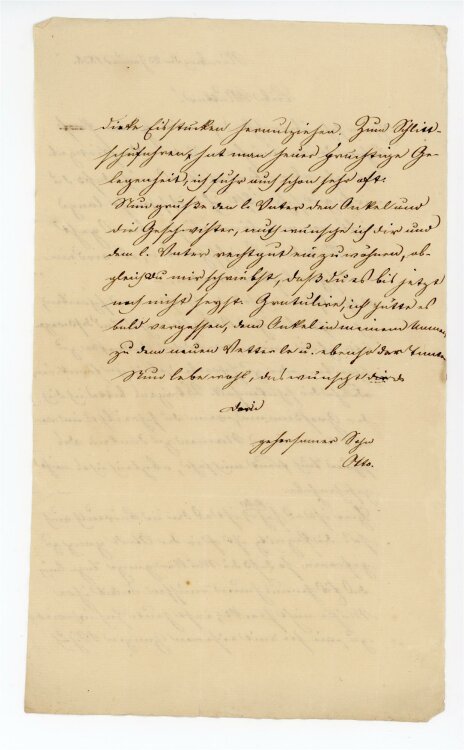 dicke Eisstücken herausziehen. Zum Schlitt-
schuhfahren, hat man heuer prächtige Ge-
legenheit, ich fuhr auch schon sehr oft.
Nun grüße den l. Vater den Onkel und
die Geschwister, auch wünsche ich dir und
dem l. Vater recht gut einzuwohnen, ob-
gleich du mir schriebst, daß du es bis jetzt
noch nicht seyst. Gratulire, ich hätte es
bald vergessen, dem Onkel in meinem Namen,
zu dem neuen Vetterle u. ebenso der Tante
Nun lebe wohl, das wünscht
Dein
gehorsamer Sohn
Otto.